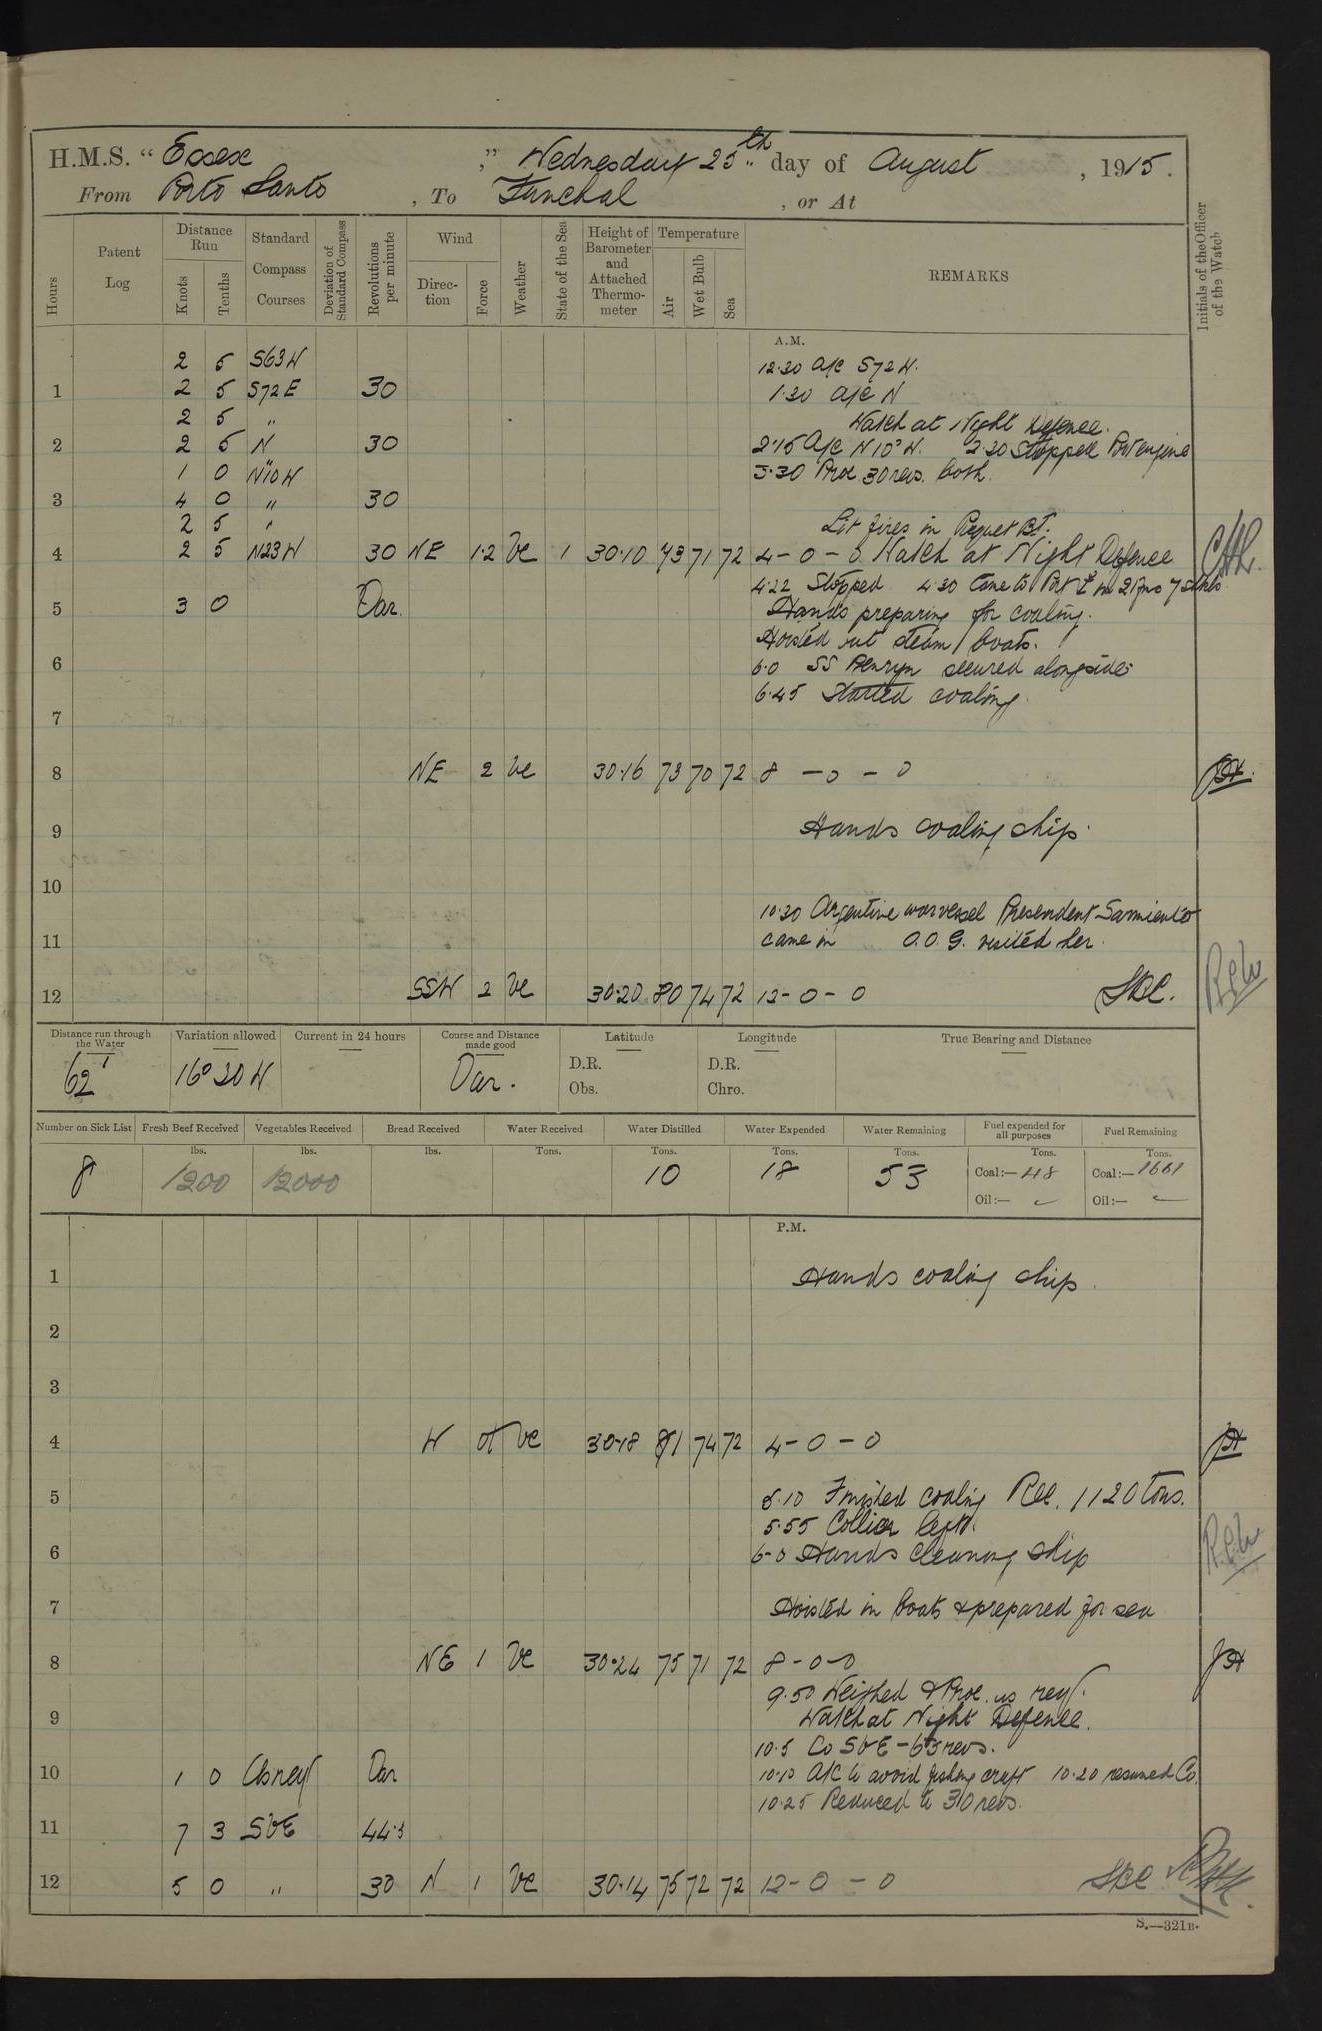 H.M.S. “ Essex ,” Wednesday 25th day of August , 1915.
From Porto Santo , To Funchal , or At
Hours
Patent Log
Distance Run
Knots
Tenths
Standard Compass Courses
Deviation of Standard Compass
Revolutions per minute
Wind
Direction
Force
Weather
State of the Sea
Height of Barometer and Attached Thermometer
Temperature
Air
Wet Bulb
Sea
REMARKS
Initials of the Officer of the Watch
A.M.
2 5 S63W 12.30 a/c S72W.
1 2 5 S72E 30 1.30 a/c N
2 5 " Watch at Night Defence.
2 2 5 N 30 2.15 A/c N10°W. 2.20 Stopped Port engine
1 0 N10W 3.30 Proc 30 revs. both.
3 4 0 " 30
2 5 " Lit fires in Picquet Bt.
4 2 5 N23W 30 NE 1.2 bc 1 30.10 73 71 72 4-0-0 Watch at Night Defence
4.22 Stopped 4.30 Came to Port in 21 fms 7 shkls
5 3 0 Var. Hands preparing for coaling.
Hoisted out steam boats.
6 6.0 SS Penryn secured alongside
6.45 Started coaling.
7
8 NE 2 bc 30.16 73 70 72 8 - 0 - 0
9 Hands coaling ship.
10
10.30 Argentine war vessel Presendent Sarmiento
11 came in O.O.G. visited her.
12 SSW 2 bc 30.20 80 74 72 12-0-0
Distance run through the Water
62'
Variation allowed
16° 20 W
Current in 24 hours
Course and Distance made good
Var.
Latitude
D.R.
Obs.
Longitude
D.R.
Chro.
True Bearing and Distance
Number on Sick List
8
Fresh Beef Received
lbs.
1200
Vegetables Received
lbs.
12000
Bread Received
lbs.
Water Received
Tons.
Water Distilled
Tons.
10
Water Expended
Tons.
18
Water Remaining
Tons.
53
Fuel expended for all purposes
Tons.
Coal:— 48
Oil:—
Fuel Remaining
Tons.
Coal:— 1661
Oil:—
P.M.
1 Hands coaling ship.
2
3
4 W bc 30.18 81 74 72 4-0-0
5 5.10 Finished coaling Rec. 1120 Tons.
5.55 Collier left.
6 6-0 Hands cleaning ship
7 Hoisted in boats & prepared for sea
8 NE 1 bc 30.24 75 71 72 8-0-0
9.50 Weighed & Proc. as req.
9 Watch at Night Defence.
10.5 Co SbE - 63 revs.
10 1 0 As req Var 10.10 A/C to avoid fishing craft 10.20 resumed Co.
10.25 Reduced to 30 revs.
11 7 3 SbE 44.3
12 5 0 " 30 N 1 bc 30.14 75 72 72 12-0-0
S.—321B.